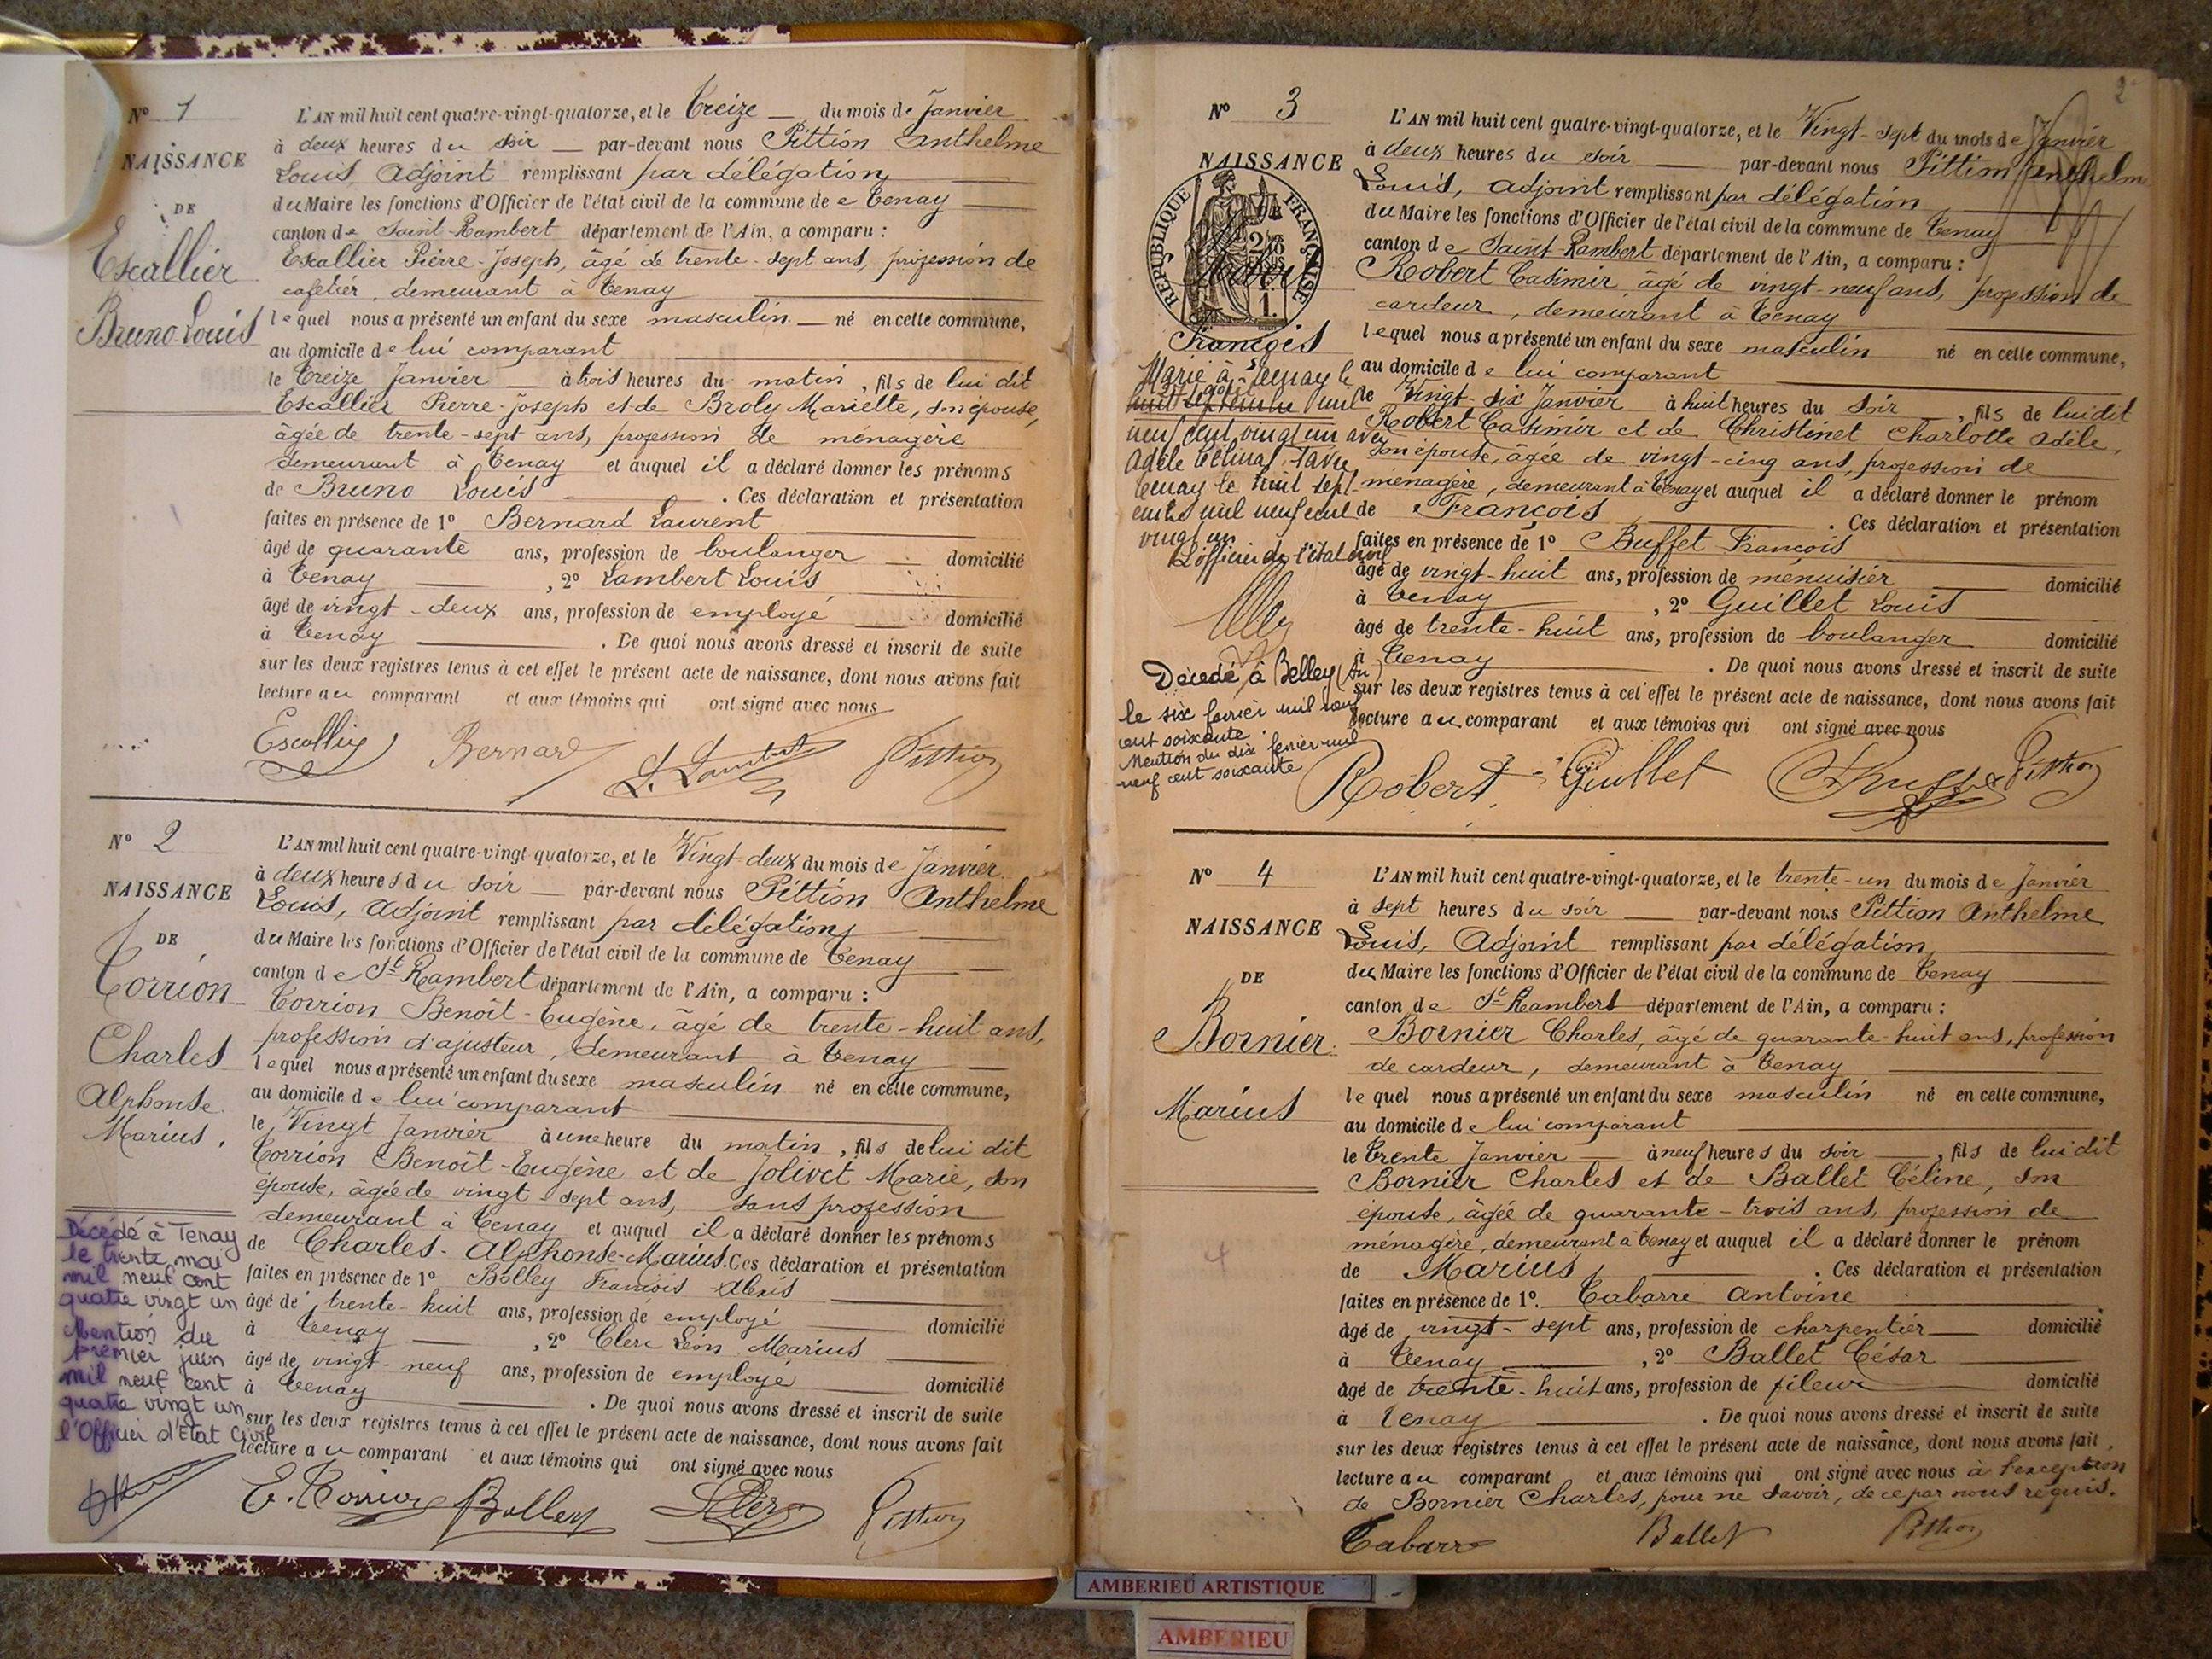 Nº 1
NAISSANCE
DE
Escallier
Bruno-Louis
L'AN mil huit cent quatre-vingt-quatorze, et le Treize du mois de Janvier
à deux heures du soir par-devant nous Pittion Anthelme
Louis, Adjoint remplissant par délégation
du Maire les fonctions d'Officier de l'état civil de la commune de Tenay
canton de Saint-Rambert département de l'Ain, a comparu :
Escallier Pierre-Joseph, âgé de trente-sept ans, profession de
cafetier, demeurant à Tenay
lequel nous a présenté un enfant du sexe masculin né en cette commune,
au domicile de lui comparant
le Treize Janvier à trois heures du matin, fils de lui dit
Escallier Pierre-Joseph et de Broly Mariette, son épouse,
âgée de trente-sept ans, profession de ménagère
demeurant à Tenay et auquel il a déclaré donner les prénoms
de Bruno Louis . Ces déclaration et présentation
faites en présence de 1º Bernard Laurent
âgé de quarante ans, profession de boulanger domicilié
à Tenay , 2º Lambert Louis
âgé de vingt-deux ans, profession de employé domicilié
à Tenay . De quoi nous avons dressé et inscrit de suite
sur les deux registres tenus à cet effet le présent acte de naissance, dont nous avons fait
lecture au comparant et aux témoins qui ont signé avec nous
Escallier Bernard L. Lambert Pittion
Nº 2
NAISSANCE
DE
Torrion
Charles
Alphonse
Marius.
L'AN mil huit cent quatre-vingt-quatorze, et le Vingt-deux du mois de Janvier
à deux heures du soir par-devant nous Pittion Anthelme
Louis, Adjoint remplissant par délégation
du Maire les fonctions d'Officier de l'état civil de la commune de Tenay
canton de St Rambert département de l'Ain, a comparu :
Torrion Benoît-Eugène, âgé de trente-huit ans,
profession d'ajusteur, demeurant à Tenay
lequel nous a présenté un enfant du sexe masculin né en cette commune,
au domicile de lui comparant
le Vingt Janvier à une heure du matin, fils de lui dit
Torrion Benoît-Eugène et de Jolivet Marie, son
épouse, âgée de vingt-sept ans, sans profession
demeurant à Tenay et auquel il a déclaré donner les prénoms
de Charles-Alphonse-Marius. Ces déclaration et présentation
faites en présence de 1º Bolley François Alexis
âgé de trente-huit ans, profession de employé domicilié
à Tenay , 2º Clerc Léon Marius
âgé de vingt-neuf ans, profession de employé domicilié
à Tenay . De quoi nous avons dressé et inscrit de suite
sur les deux registres tenus à cet effet le présent acte de naissance, dont nous avons fait
lecture au comparant et aux témoins qui ont signé avec nous
Décédé à Tenay
le trente mai
mil neuf cent
quatre vingt un
Mention du
premier juin
mil neuf cent
quatre vingt un
l'Officier d'Etat Civil
E. Torrion Bolley Clerc Pittion
2
Nº 3
NAISSANCE
DE
REPUBLIQUE FRANÇAISE
Robert
François
L'AN mil huit cent quatre-vingt-quatorze, et le Vingt-sept du mois de Janvier
à deux heures du soir par-devant nous Pittion Anthelme
Louis, Adjoint remplissant par délégation
du Maire les fonctions d'Officier de l'état civil de la commune de Tenay
canton de Saint-Rambert département de l'Ain, a comparu :
Robert Casimir âgé de vingt-neuf ans, profession de
cardeur, demeurant à Tenay
lequel nous a présenté un enfant du sexe masculin né en cette commune,
au domicile de lui comparant
le Vingt-six Janvier à huit heures du soir , fils de lui dit
Robert Casimir et de Christinet Charlotte Adèle,
son épouse, âgée de vingt-cinq ans, profession de
ménagère, demeurant à Tenay et auquel il a déclaré donner le prénom
de François . Ces déclaration et présentation
faites en présence de 1º Buffet François
âgé de vingt-huit ans, profession de menuisier domicilié
à Tenay , 2º Guillet Louis
âgé de trente-huit ans, profession de boulanger domicilié
à Tenay . De quoi nous avons dressé et inscrit de suite
sur les deux registres tenus à cet effet le présent acte de naissance, dont nous avons fait
lecture au comparant et aux témoins qui ont signé avec nous
Marié à Tenay le
huit septembre mil
neuf cent vingt un avec
Adèle
Tenay le huit sept-
embre mil neuf cent
vingt un
L'officier de l'état civil
Décédé à Belley (Ain)
le six février mil neuf
cent soixante.
Mention du dix février mil
neuf cent soixante
Robert Guillet Buffet Pittion
Nº 4
NAISSANCE
DE
Bornier
Marius
4
L'AN mil huit cent quatre-vingt-quatorze, et le trente-un du mois de Janvier
à sept heures du soir par-devant nous Pittion Anthelme
Louis, Adjoint remplissant par délégation
du Maire les fonctions d'Officier de l'état civil de la commune de Tenay
canton de St Rambert département de l'Ain, a comparu :
Bornier Charles, âgé de quarante-huit ans, profession
de cardeur, demeurant à Tenay
lequel nous a présenté un enfant du sexe masculin né en cette commune,
au domicile de lui comparant
le Trente Janvier à neuf heures du soir , fils de lui dit
Bornier Charles et de Ballet Céline, son
épouse, âgée de quarante-trois ans, profession de
ménagère, demeurant à Tenay et auquel il a déclaré donner le prénom
de Marius . Ces déclaration et présentation
faites en présence de 1º. Tabarre Antoine
âgé de vingt-sept ans, profession de charpentier domicilié
à Tenay , 2º Ballet César
âgé de trente-huit ans, profession de fileur domicilié
à Tenay . De quoi nous avons dressé et inscrit de suite
sur les deux registres tenus à cet effet le présent acte de naissance, dont nous avons fait
lecture au comparant et aux témoins qui ont signé avec nous à l'exception
de Bornier Charles, pour ne savoir, de ce par nous requis.
Tabarre Ballet Pittion
AMBERIEU ARTISTIQUE
AMBERIEU